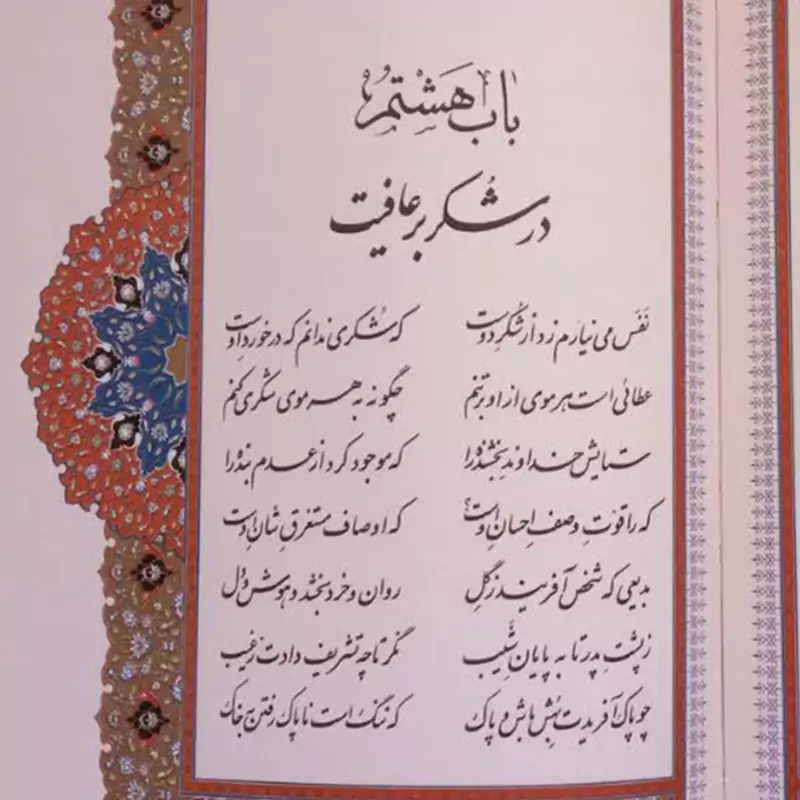 باب هشتم
در شکر بر عافیت
نَفَس می نیارم زد از شکرِ دوست که شُکری ندانم که در خورد اوست
عطائی است هر موی از او بر تنم چگونه به هر موی شکری کنم
ستایش خداوندِ بخشنده را که موجود کرد از عدم بنده را
که را قوّتِ وصفِ اِحسانِ اوست؟ که اوصاف مستغرقِ شانِ اوست
بدیعی که شخص آفریند ز گِل روان و خرد بخشد و هوش و دل
ز پشتِ پدر تا به پایانِ شَیب نگر تا چه تشریف دادت ز غیب
چو پاک آفریدت بهُش باش و پاک که ننگ است ناپاک رفتن به خاک